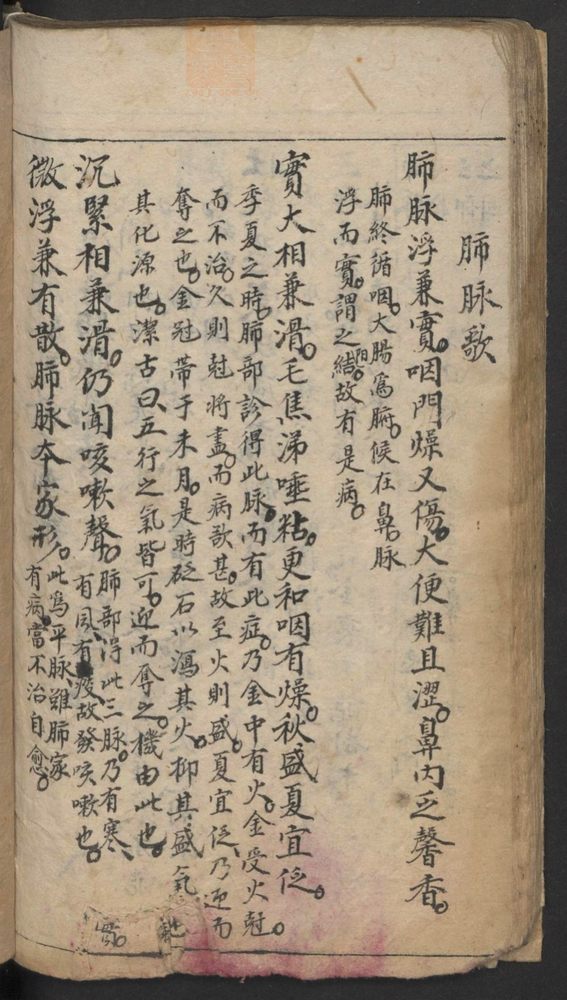 肺脉歌
肺脉浮兼實咽門燥又傷大便難且澀鼻内乏馨香
肺終循咽大腸爲腑候在鼻脉
浮而實謂之陽結故有是病
實大相兼滑毛焦涕唾粘更和咽有燥秋盛夏宜伀
季夏之時肺部診得此脉而有此症乃金中有火金受火尅
而不治久則尅將盡而病欷甚故至火則盛夏宜伀乃迎而
奪之也金尅帶于未月是時砭石以瀉其火抑其盛氣
其化源也潔古曰五行之氣皆可迎而奪之機由此也
沉緊相兼滑仍聞咳嗽聲肺部得此三脉乃有寒
有風有痰故發咳嗽也
微浮兼有散肺脉本家形此爲平脉雖肺家
有病當不治自愈